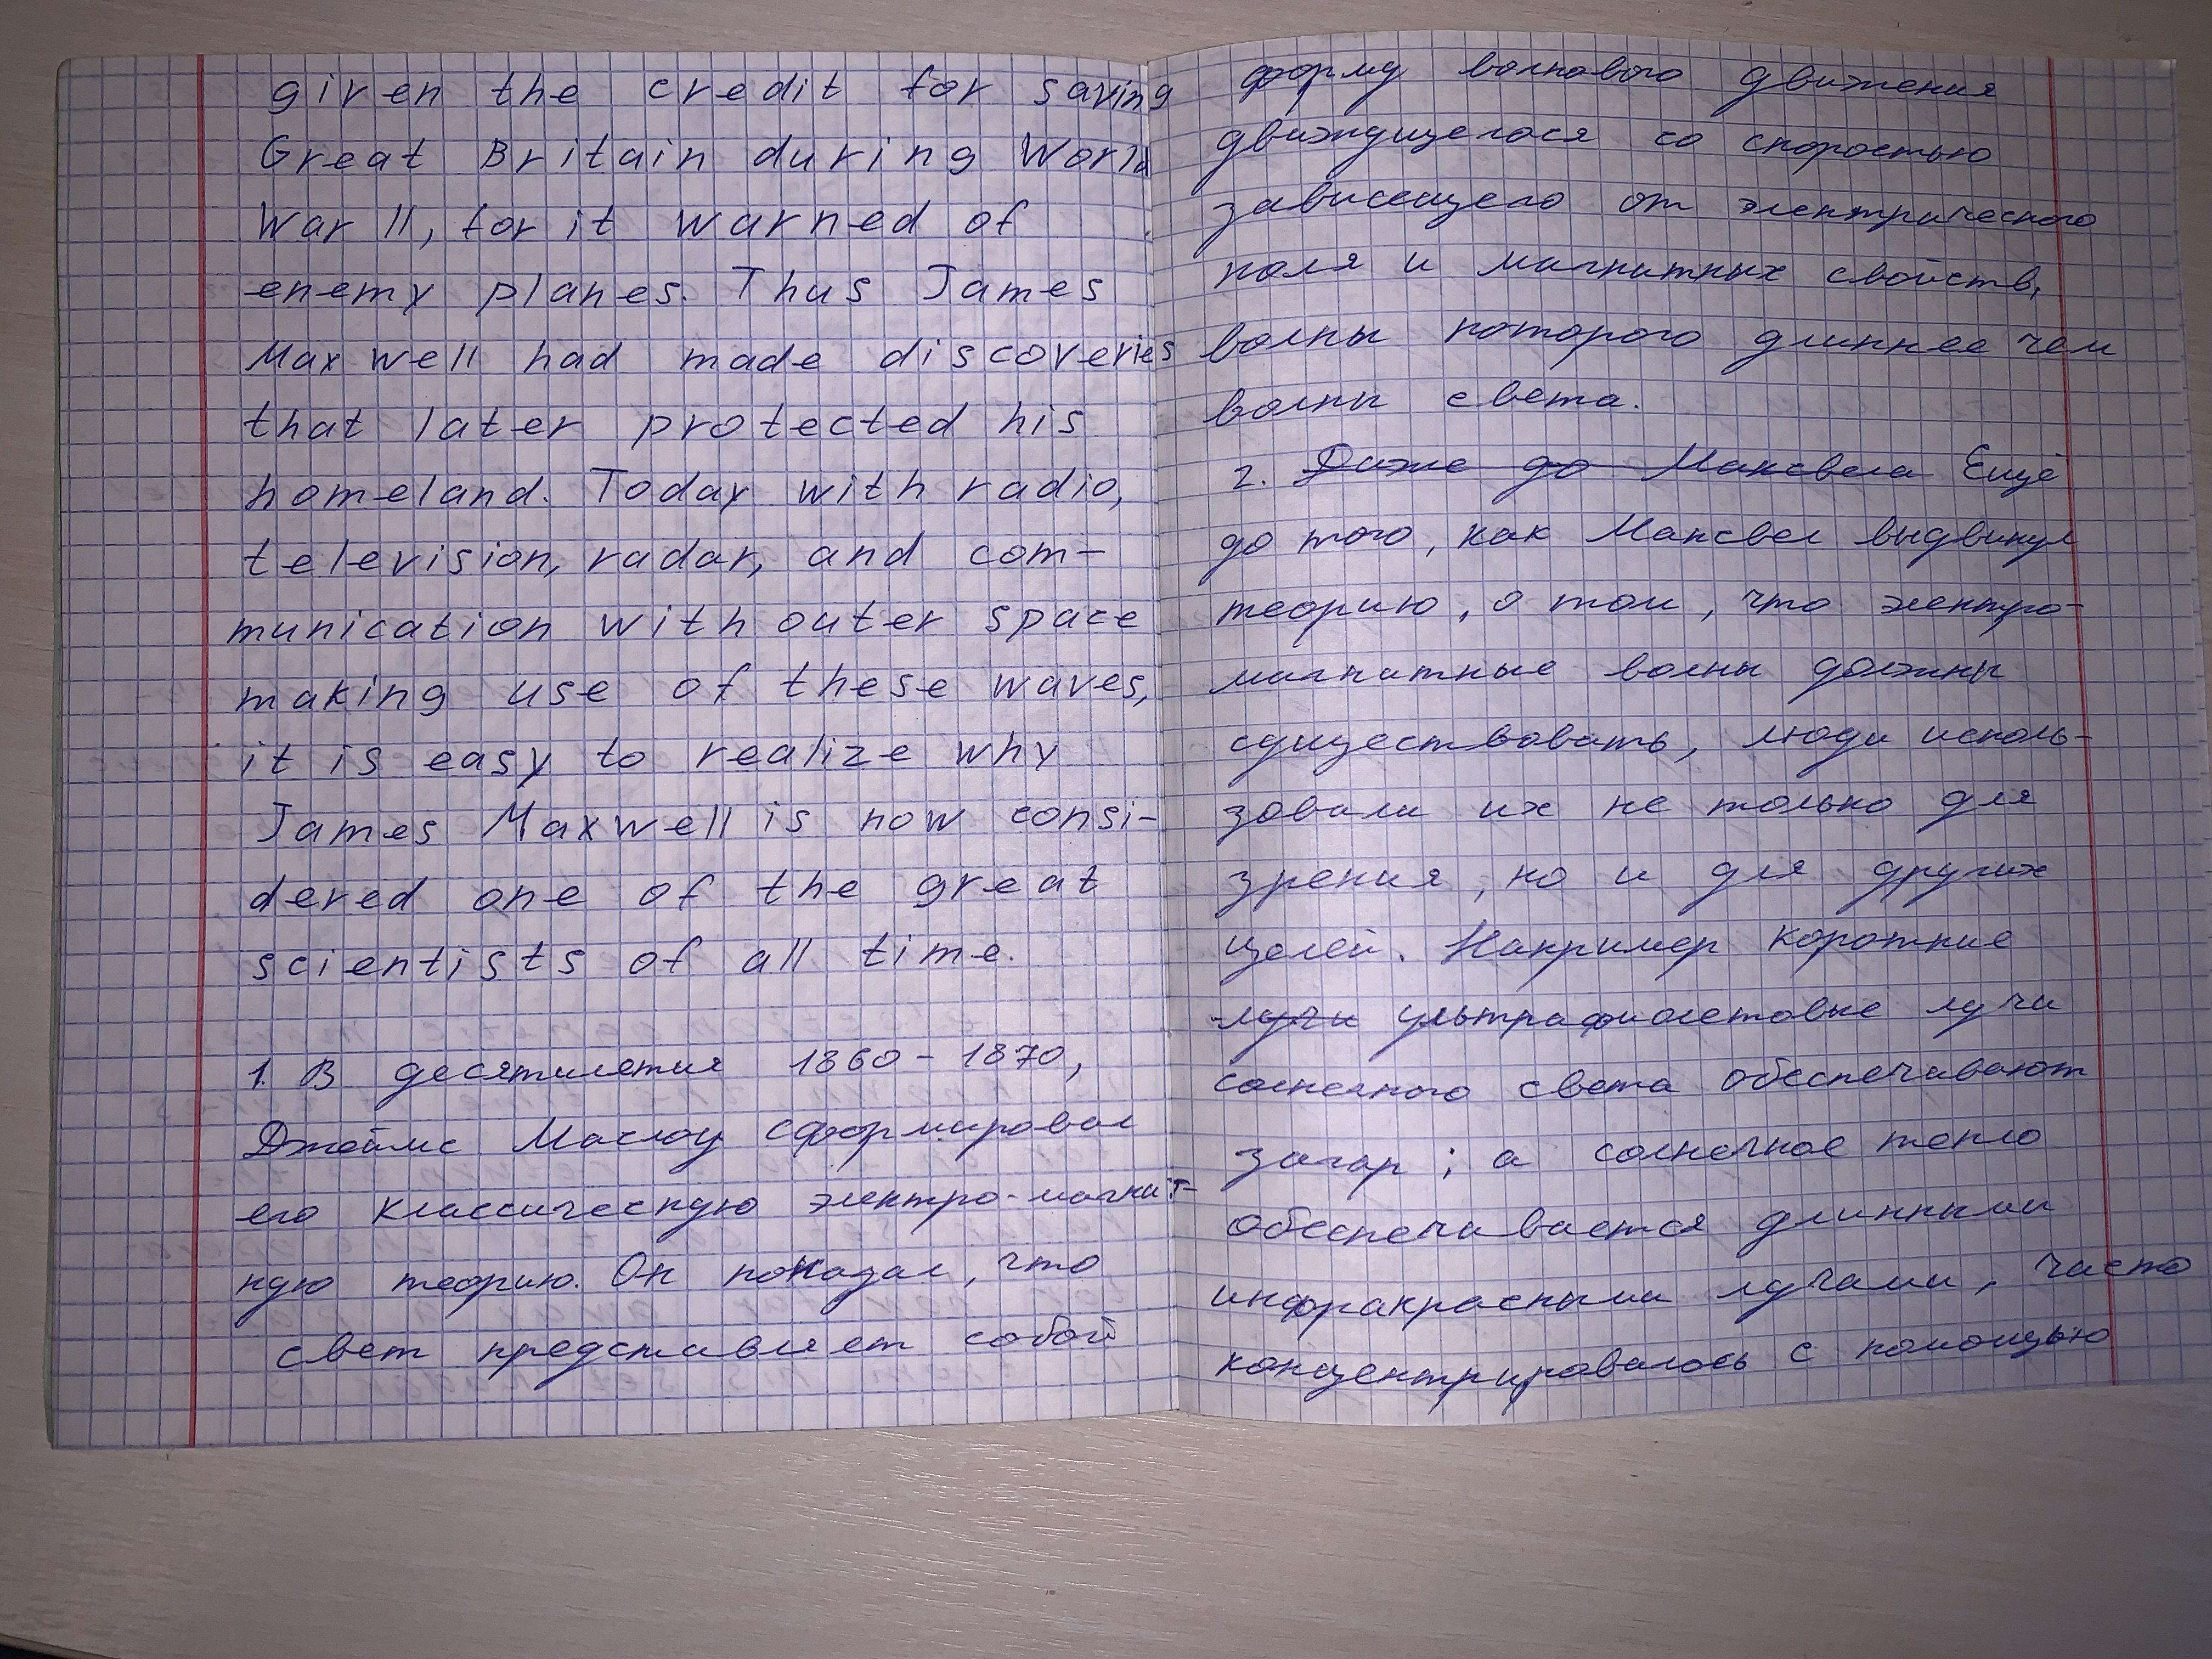 given the credit for saving
Great Britain during World
War II, for it warned of
enemy planes. Thus James
Maxwell had made discoveries
that later protected his
homeland. Today with radio,
television, radar, and com-
munication with outer space
making use of these waves,
it is easy to realize why
James Maxwell is now consi-
dered one of the great
scientists of all time.
1. В десятилетия 1860 - 1870,
Джеймс Маслоу сформировал
его классическую электро-магнит-
ную теорию. Он показал, что
свет представляет собой
форму волнового движения
движущегося со скоростью
зависещего от электрического
поля и магнитных свойств,
волны которого длиннее чем
волны света.
2. Даже до Максвела Ещё
до того, как Максвел выдвинул
теорию, о том, что электро-
магнитные волны должны
существовать, люди исполь-
зовали их не только для
зрения, но и для других
целей. Например короткие
лучи ультрафиолетовые лучи
солнечного света обеспечивают
загар; а солнечное тепло
обеспечивается длинными
инфракрасными лучами, часто
концентрировалось с помощью